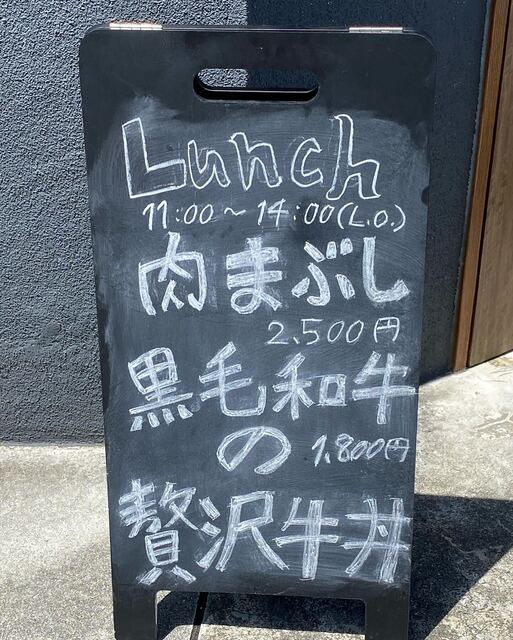 Lunch
11:00〜14:00(L.O.)
肉まぶし
2.500円
黒毛和牛
の 1.800円
贅沢牛丼